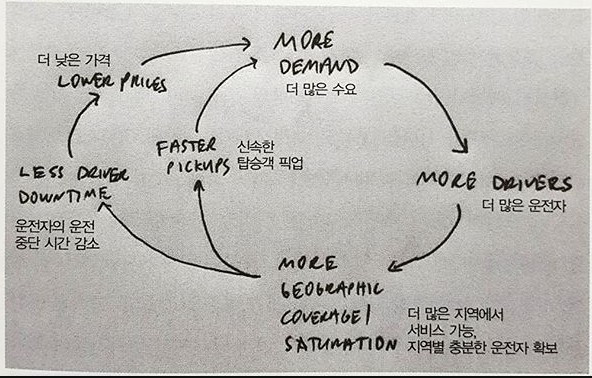 MORE
DEMAND
더 많은 수요
더 낮은 가격
LOWER PRICES
FASTER
PICKUPS
신속한
탑승객 픽업
LESS DRIVER
DOWNTIME
운전자의 운전
중단 시간 감소
MORE DRIVERS
더 많은 운전자
MORE
GEOGRAPHIC
COVERAGE/
SATURATION
더 많은 지역에서
서비스 가능,
지역별 충분한 운전자 확보